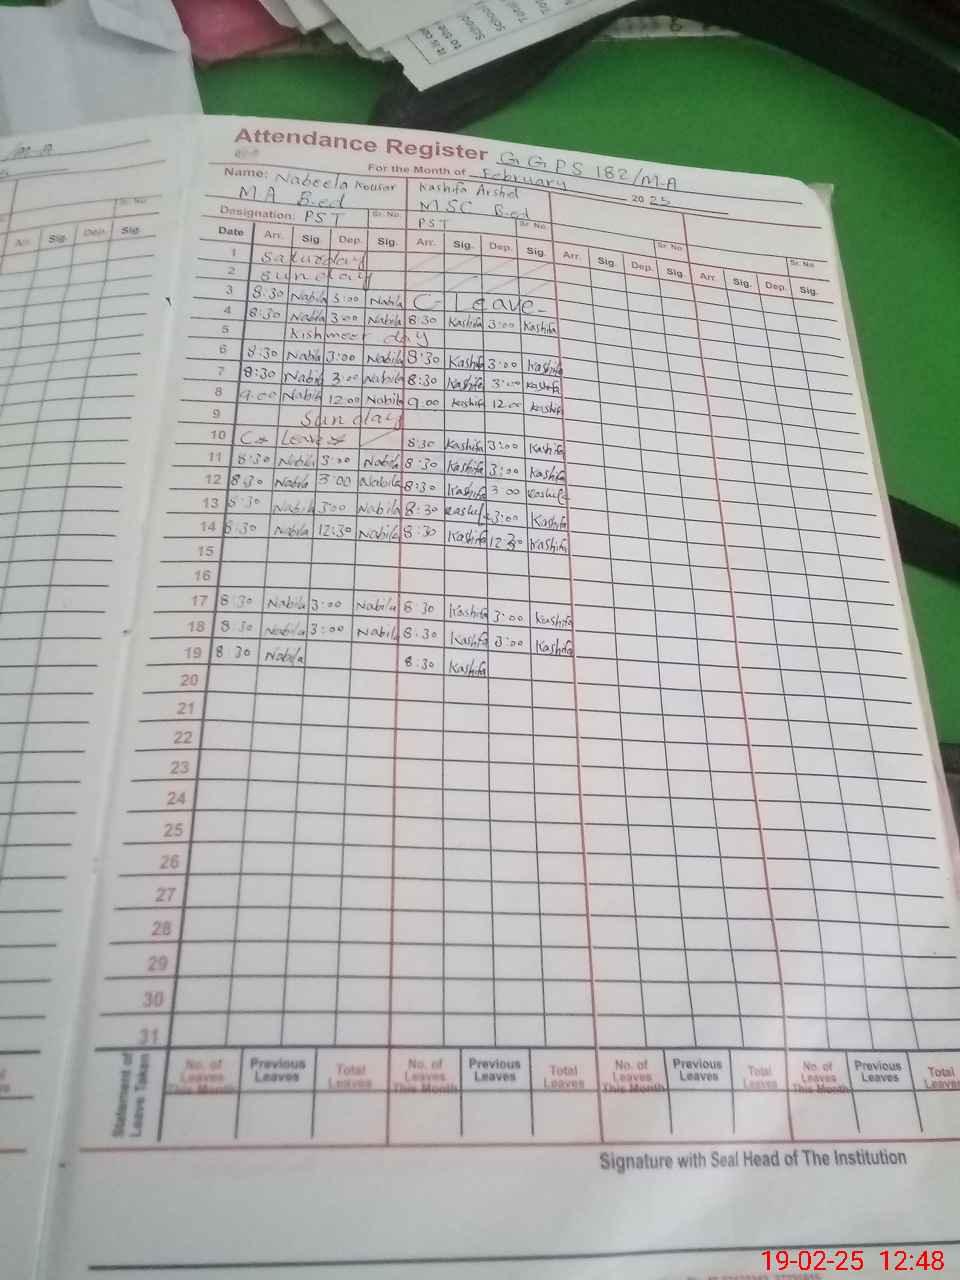 Attendance Register GGPS 182/M-A
For the Month of February 2025
Name: Nabeela Kousar Kashifa Arshid
MA B-ed MSC B-ed
Designation: PST Sr. No. PST Sr. No. Sr. No. Sr. No.
Date Arr. Sig. Dep. Sig. Arr. Sig. Dep. Sig. Arr. Sig. Dep. Sig. Arr. Sig. Dep. Sig.
1 Saturday
2 Sunday
3 8:30 Nabila 3:00 Nabila C- Leave-
4 8:30 Nabila 3:00 Nabila 8:30 Kashifa 3:00 Kashifa
5 Kishmeer day
6 8:30 Nabila 3:00 Nabila 8:30 Kashifa 3:00 Kashifa
7 8:30 Nabila 3:00 Nabila 8:30 Kashifa 3:00 Kashifa
8 9:00 Nabila 12:00 Nabila 9:00 Kashifa 12:00 Kashifa
9 Sunday
10 C- Leave 8:30 Kashifa 3:00 Kashifa
11 8:30 Nabila 3:00 Nabila 8:30 Kashifa 3:00 Kashifa
12 8:30 Nabila 3:00 Nabila 8:30 Kashifa 3:00 Kashifa
13 8:30 Nabila 3:00 Nabila 8:30 Kashifa 3:00 Kashifa
14 8:30 Nabila 12:30 Nabila 8:30 Kashifa 12:30 Kashifa
15
16
17 8:30 Nabila 3:00 Nabila 8:30 Kashifa 3:00 Kashifa
18 8:30 Nabila 3:00 Nabila 8:30 Kashifa 3:00 Kashifa
19 8:30 Nabila 8:30 Kashifa
20
21
22
23
24
25
26
27
28
29
30
31
Statement of Leave Taken
No. of Leaves This Month Previous Leaves Total Leaves No. of Leaves This Month Previous Leaves Total Leaves No. of Leaves This Month Previous Leaves Total Leaves No. of Leaves This Month Previous Leaves Total Leaves
Signature with Seal Head of The Institution
19-02-25 12:48